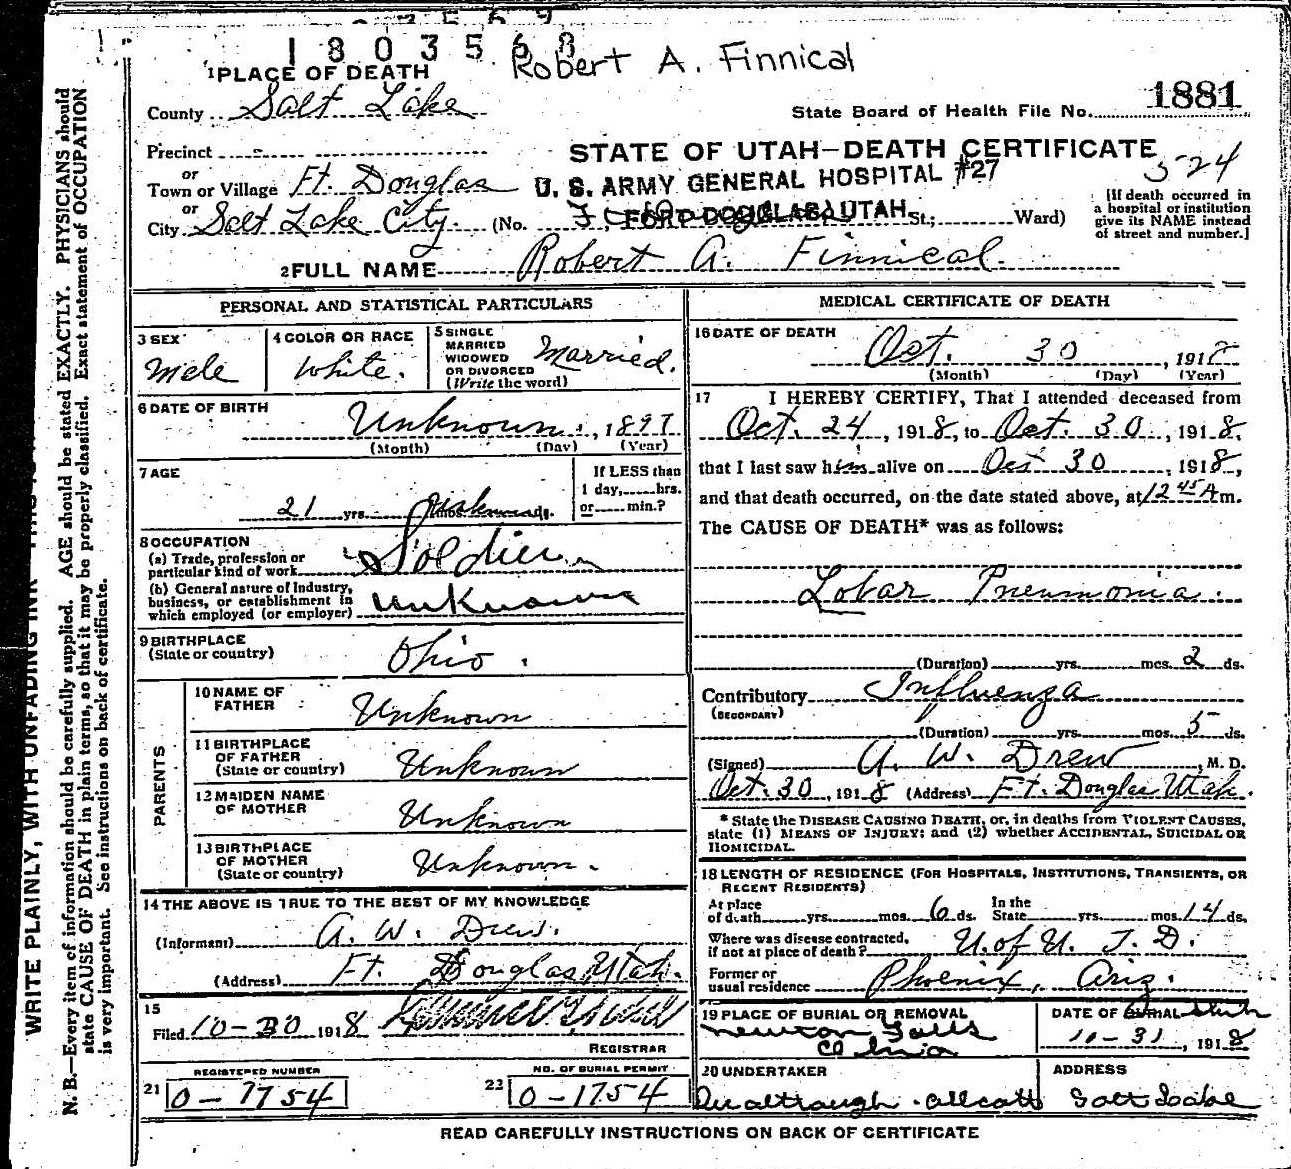 1803568
Robert A. Finnical
1 PLACE OF DEATH
County Salt Lake
State Board of Health File No. 1881
Precinct -
STATE OF UTAH—DEATH CERTIFICATE
524
or
Town or Village Ft. Douglas
U. S. ARMY GENERAL HOSPITAL #27
or
City Salt Lake City (No. FORT DOUGLAS, UTAH St.; Ward)
[If death occurred in
a hospital or institution
give its NAME instead
of street and number.]
2 FULL NAME Robert A. Finnical
PERSONAL AND STATISTICAL PARTICULARS
3 SEX
Male
4 COLOR OR RACE
White.
5 SINGLE
MARRIED
WIDOWED
OR DIVORCED
(Write the word)
Married.
6 DATE OF BIRTH
Unknown, 1897
(Month) (Day) (Year)
7 AGE
21 yrs. Unknown mos. ds.
If LESS than
1 day, hrs.
or min.?
8 OCCUPATION
(a) Trade, profession or
particular kind of work Soldier
(b) General nature of industry,
business, or establishment in
which employed (or employer) Unknown
9 BIRTHPLACE
(State or country)
Ohio.
PARENTS
10 NAME OF
FATHER
Unknown
11 BIRTHPLACE
OF FATHER
(State or country)
Unknown
12 MAIDEN NAME
OF MOTHER
Unknown
13 BIRTHPLACE
OF MOTHER
(State or country)
Unknown.
14 THE ABOVE IS TRUE TO THE BEST OF MY KNOWLEDGE
(Informant) A. W. Drew.
(Address) Ft. Douglas, Utah.
15
Filed 10-30 1918
REGISTRAR
REGISTERED NUMBER
21 0-1754
NO. OF BURIAL PERMIT
22 0-1754
MEDICAL CERTIFICATE OF DEATH
16 DATE OF DEATH
Oct. 30, 1918
(Month) (Day) (Year)
17 I HEREBY CERTIFY, That I attended deceased from
Oct. 24, 1918, to Oct. 30, 1918,
that I last saw him alive on Oct 30, 1918,
and that death occurred, on the date stated above, at 12 45 A m.
The CAUSE OF DEATH* was as follows:
Lobar Pneumonia.
(Duration) yrs. mos. 2 ds.
Contributory Influenza
(SECONDARY)
(Duration) yrs. mos. 5 ds.
(Signed) A. W. Drew, M. D.
Oct. 30, 1918 (Address) Ft. Douglas Utah.
* State the DISEASE CAUSING DEATH, or, in deaths from VIOLENT CAUSES,
state (1) MEANS OF INJURY: and (2) whether ACCIDENTAL, SUICIDAL OR
HOMICIDAL.
18 LENGTH OF RESIDENCE (FOR HOSPITALS, INSTITUTIONS, TRANSIENTS, OR
RECENT RESIDENTS)
At place
of death yrs. mos. 6 ds.
In the
State yrs. mos. 14 ds.
Where was disease contracted,
if not at place of death? U. of U. T. D.
Former or
usual residence Phoenix, Ariz.
19 PLACE OF BURIAL OR REMOVAL
Newton Falls
Ohio
DATE OF BURIAL
10-31, 1918
20 UNDERTAKER
ADDRESS
Salt Lake
READ CAREFULLY INSTRUCTIONS ON BACK OF CERTIFICATE
N. B.—Every item of information should be carefully supplied. AGE should be stated EXACTLY. PHYSICIANS should
state CAUSE OF DEATH in plain terms, so that it may be properly classified. Exact statement of OCCUPATION
is very important. See instructions on back of certificate.
WRITE PLAINLY, WITH UNFADING INK